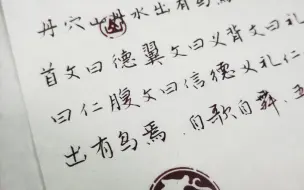 丹穴出丹水出有鸟焉
首文曰德翼文曰义背文曰礼
曰仁腹文曰信德义礼仁
出有鸟焉.自歌自舞.